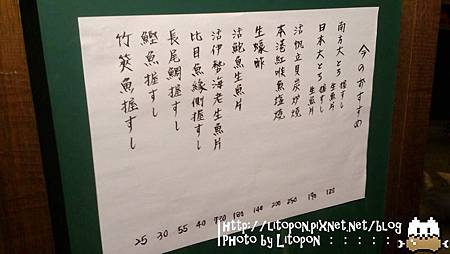 今のおすすめ
南方大とろ 握すし 生魚片 120
日本大とろ 握すし 生魚片 190
活帆立貝炭炉燒 250
本港紅喉魚塩燒 200
生蠔酢 140
活鮑魚生魚片 180
活伊勢海老生魚片
比目魚緣側握すし 40
長尾鯛握すし 55
鰹魚握すし 30
竹筴魚握すし 25
Http://Litopon.pixnet.net/blog
Photo by Litopon : : : : : :